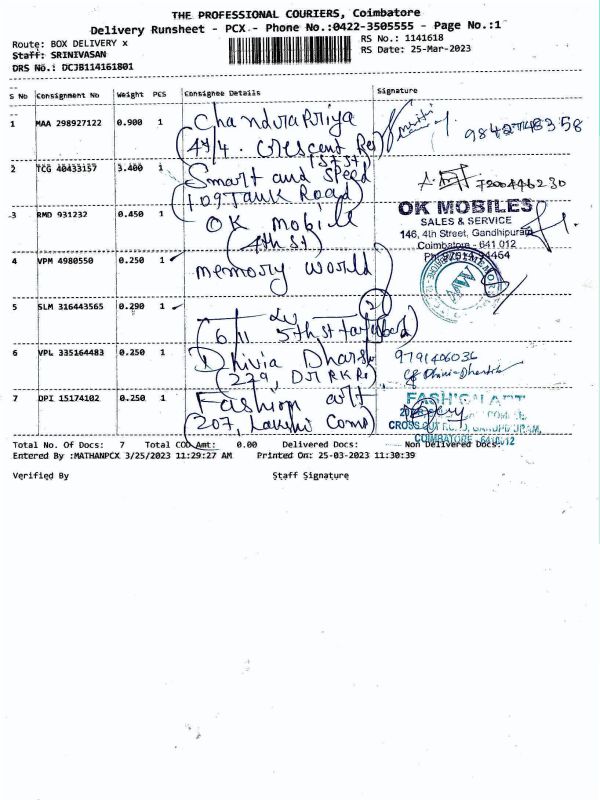 THE PROFESSIONAL COURIERS, Coimbatore
Delivery Runsheet - PCX - Phone No.:0422-3505555 - Page No.:1
Route: BOX DELIVERY x
RS No.: 1141618
Staff: SRINIVASAN
RS Date: 25-Mar-2023
DRS No.: DCJB114161801
S No Consignment No Weight PCS Consignee Details Signature
1 MAA 298927122 0.900 1 Chandrapriya
(4/4. Crescent Res
1st St)
2 TCG 40433157 3.400 1 Smart and Speed
(109 Tank Road)
7200446230
3 RMD 931232 0.450 1 OK Mobile
(4th St)
OK MOBILES
SALES & SERVICE
146, 4th Street, Gandhipuram
Coimbatore - 641 012
4 VPM 4980550 0.250 1 memory world
5 SLM 316443565 0.290 1
(6/11 5th st
2
6 VPL 335164483 0.250 1 Dhivia Dharsh
(279,
9791406036
7 DPI 15174102 0.250 1 Fashion art
(207, Lakshmi Com)
FASHION ART
COIMBATORE - 641012
Total No. Of Docs: 7 Total COD Amt: 0.00 Delivered Docs: Non Delivered Docs:
Entered By :MATHANPCX 3/25/2023 11:29:27 AM Printed On: 25-03-2023 11:30:39
Verified By Staff Signature